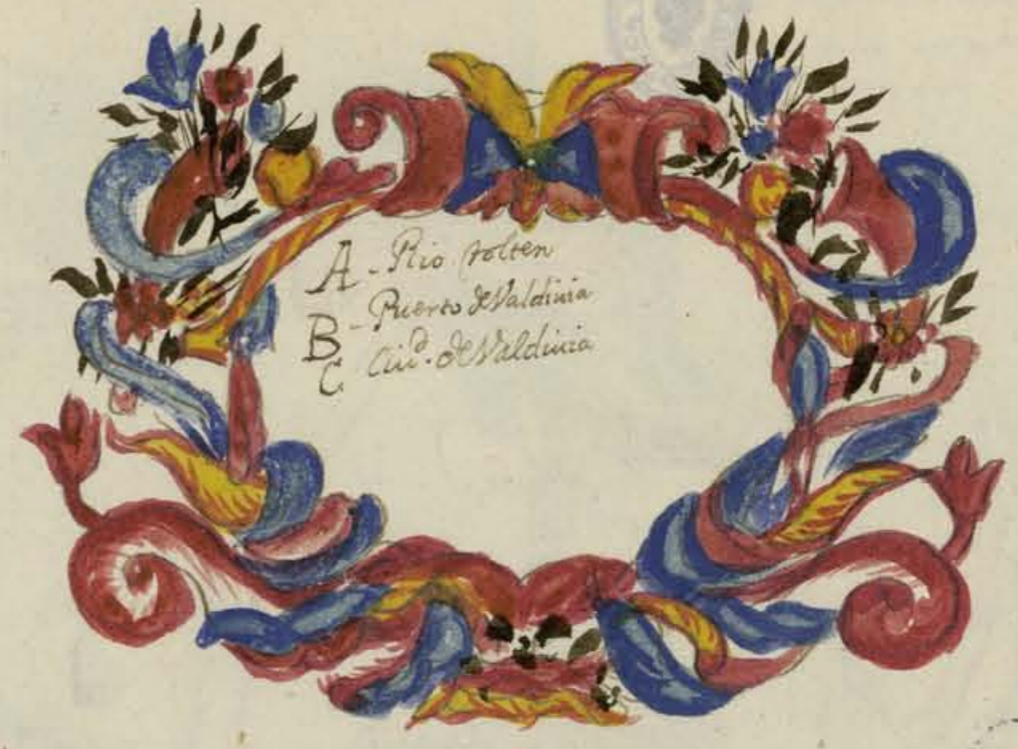 A - Rio tolten
B - Puerto de Valdiuia
C Ciud. de Valdiuia